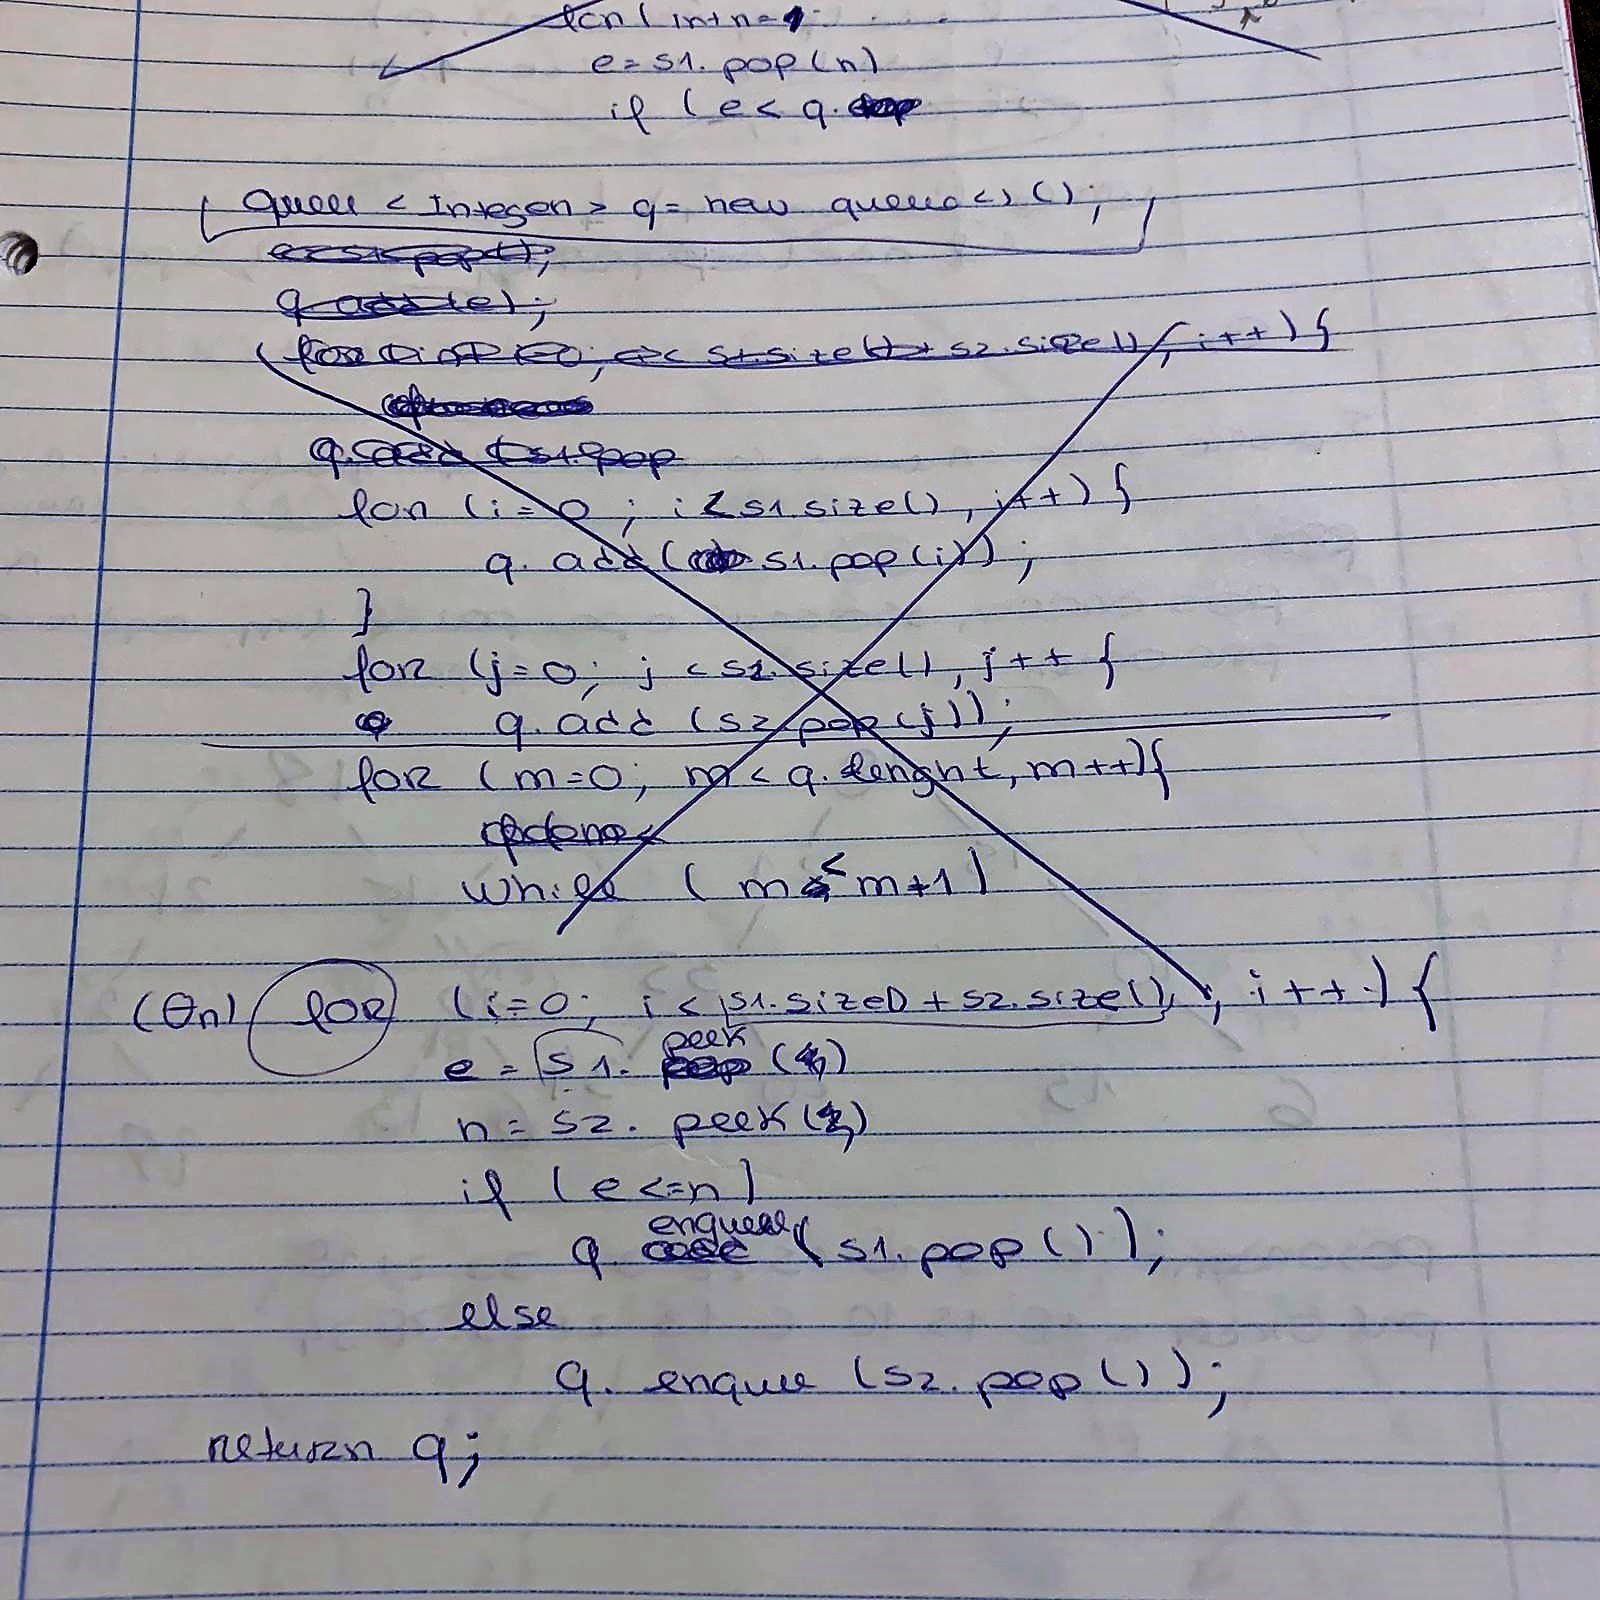 for (int n=1
e=s1.pop(n)
if (e< q.
Queue <Integer> q= new queue<>();
s1.pop();
q add (e);
s1.size()+ s2.size() , i++){
q.add (s1.pop
for (i=0; i<s1 size(), i++){
q. add( s1.pop(i));
}
for (j=0; j <s2.size(), j++ {
q.add (s2.pop(j));
for (m=0; m< q.lenght, m++){
while (m < m+1)
(θn) for (i=0; i< s1.size()+s2.size(), , i++){
e = s1. peek ()
n = s2. peek()
if (e<=n)
q. enqueue (s1.pop());
else
q. enque (s2.pop());
return q;